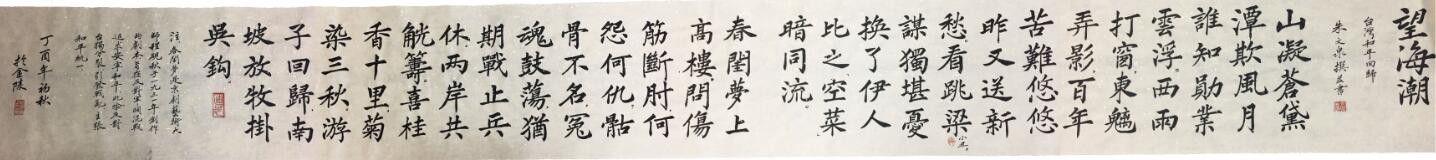 望海潮
台灣和平回歸
朱文泉撰并書
山凝蒼黛
潭欺風月
誰知勛業
雲浮西雨
打窗東魑
弄影百年
苦難悠悠
昨又送新
愁看跳梁小丑
謀獨堪憂
換了伊人
比之空菜
暗同流
春閨夢上
高樓問傷
筋斷肘何
怨何仇骷
骨不名冤
魂鼓蕩猶
期戰止兵
休两岸共
觥籌喜桂
香十里菊
染三秋游
子回歸南
坡放牧掛
吳鈎
注春閨夢是京劇藝術大
師程硯秋于一九三一年創作
此劇本旨在反對軍閥混戰
追求安寧和平此擬反對
台獨分裂引發戰亂主張
和平統一
丁酉年初秋
於金陵